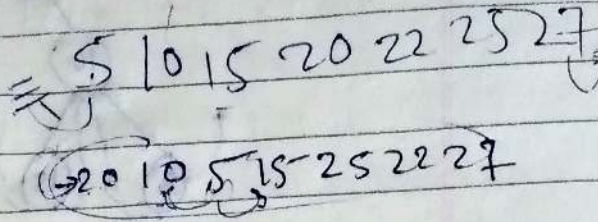 ⇒ 5 10 15 20 22 25 27
→ 20 10 5 15 25 22 27